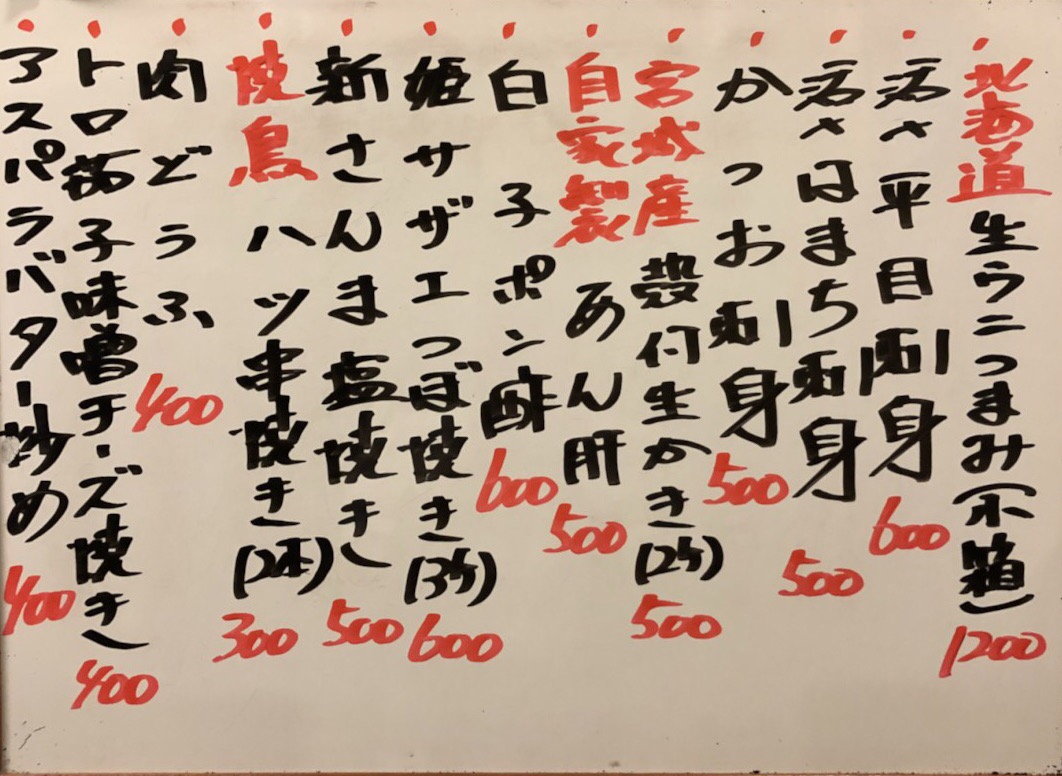 北海道生ウニつまみ(木箱) 1200
活〆平目刺身 600
活〆はまち刺身 500
かつお刺身 500
宮城産殻付生かき(2ケ) 500
自家製あん肝 500
白子ポン酢 600
姫サザエつぼ焼き(3ケ) 600
新さんま塩焼き 500
焼鳥ハツ串焼き(2本) 300
肉どうふ 400
トロ茄子味噌チーズ焼き 400
アスパラバター炒め 400